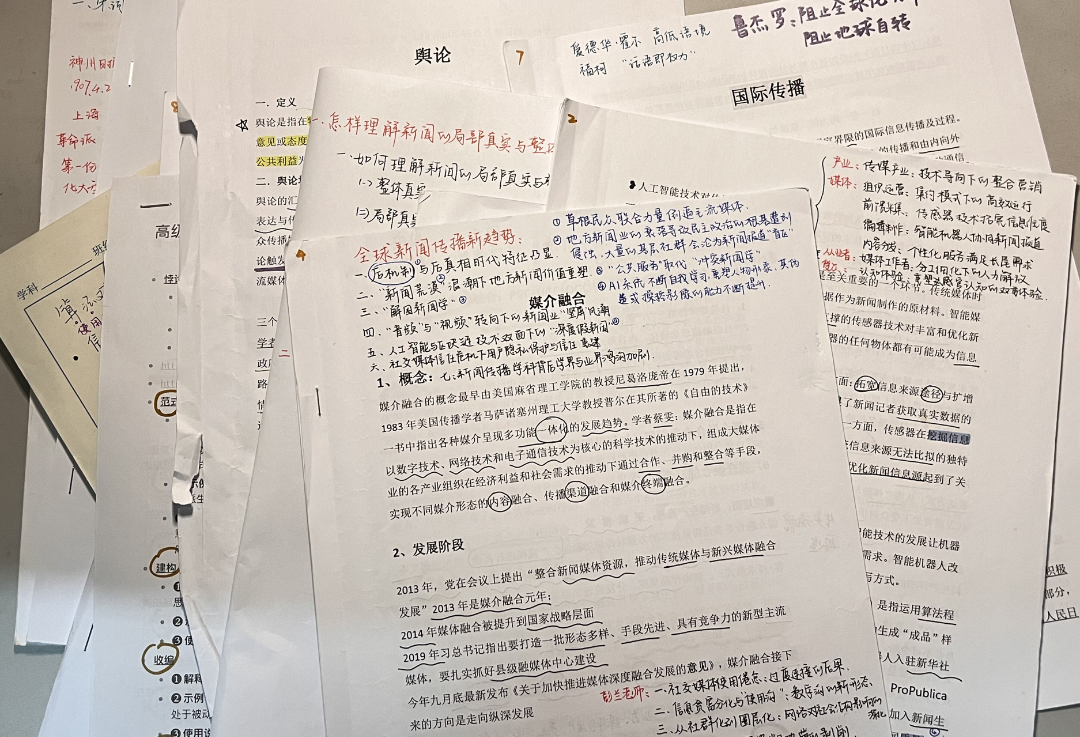 神川日
1907.4.2
上海
革命派
第一份
舆论
一．定义
舆论是指在
意见或态度
公共利益
二．舆论
舆论的汇
表达与传
众传播
论触发
流媒体
三个
学者
政府
路
学科
班级
高级
范式
建构
收编
❶ 解释
❷ 示例
处于被动
❸ 使用
7
一．怎样理解新闻的局部真实与整
一．如何理解新闻的局部真实与
(一) 整体真实
(二) 局部真
爱德华·霍尔 高低语境
福柯 “话语即权力”
鲁杰罗：阻止全球化
阻止地球自转
国际传播
界限的国际信息传播及过程。
的传播和由内向外
2
人工智能技术对
产业：传媒产业：技术导向下的整合营销
媒体：组织运营：集约模式下的高效运行
前端采集：传感器技术拓展信息维度
编辑制作：智能机器人协同新闻报道
内容分发：个性化服务满足长尾需求
从业者：媒体工作者：分工细化下的人力解放
认知体验：重塑感官认知的双重体验
是至关重要的一个环节。传统媒体时
据作为新闻制作的原材料。智能媒
撑的传感器技术对丰富和优化新
器的任何物体都有可能成为信息
面：拓宽信息来源途径与扩增
了新闻记者获取真实数据的
一方面，传感器在挖掘信息
信息来源无法比拟的独特
优化新闻信息源起到了关
能技术的发展让机器
需求。智能机器人改
方式。
是指运用算法程
生成“成品”样
人入驻新华社
ProPublica
加入新闻生
积极
部分，
人民日
4
全球新闻传播新趋势：
① 草根民众联合力量倒逼主流媒体
② 地方新闻业的衰落导致民主政治的根基遭到
侵蚀，大量的基层社群会沦为新闻报道“盲区”
③ “公共服务”取代“冲突新闻学”
④ AI系统不断自我学习，重塑人物形象，其伪
造或操纵影像的能力不断提升。
一、后机制与后真相时代特征凸显
二、“新闻荒漠”浪潮下地方新闻价值重塑
三、“解困新闻学”③
四、“音频”与“视频”转向下的新闻业“竖屏”风潮
五、人工智能与区块链技术双面下的“深度假新闻”④
六、社交媒体信任危机下用户隐私保护与信任重建
七、新闻传播学科背后学界与业界鸿沟加剧
媒介融合
1、概念：
媒介融合的概念最早由美国麻省理工学院的教授尼葛洛庞帝在 1979 年提出，
1983 年美国传播学者马萨诸塞州理工大学教授普尔在其所著的《自由的技术》
一书中指出各种媒介呈现多功能一体化的发展趋势。学者蔡雯：媒介融合是指在
以数字技术、网络技术和电子通信技术为核心的科学技术的推动下，组成大媒体
业的各产业组织在经济利益和社会需求的推动下通过合作、并购和整合等手段，
实现不同媒介形态的内容融合、传播渠道融合和媒介终端融合。
2、发展阶段
2013 年，党在会议上提出“整合新闻媒体资源，推动传统媒体与新兴媒体融合
发展”2013 年是媒介融合元年；
2014 年媒体融合被提升到国家战略层面
2019 年习总书记指出要打造一批形态多样、手段先进、具有竞争力的新型主流
媒体，要扎实抓好县级融媒体中心建设
今年九月底最新发布《关于加快推进媒体深度融合发展的意见》，媒介融合接下
来的方向是走向纵深发展
彭兰老师：一．社交媒体使用倦怠：过度连接的后果
二．信息贫富分化与“使用沟”：数字沟的新形态
三．从社群化到圈层化：网络对社会结构影响的深化